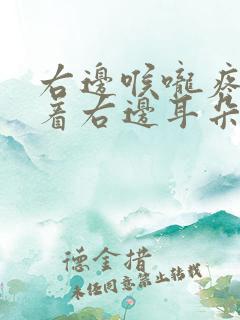 右邊喉嚨疼
着右邊耳朵
德金措
未经同意禁止转载